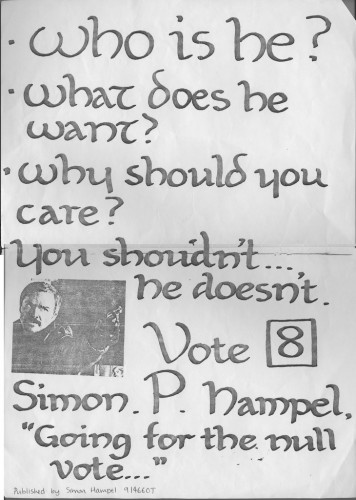 · Who is he?
· What does he
want?
· Why should you
care?
You shouldn't...
he doesn't.
Vote 8
Simon. P. Hampel,
"Going for the null
vote..."
Published by Simon Hampel 914660T